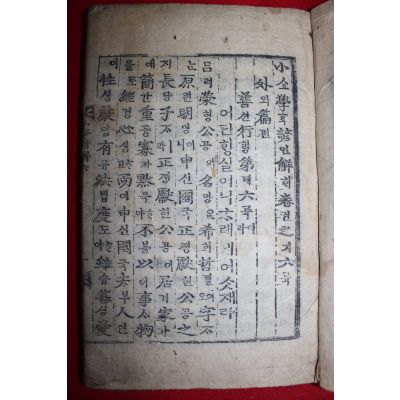 小쇼學학諺언解해卷권之지六륙
外외篇편
善션行ᄒᆡᆼ第뎨六륙
어딘ᄒᆡᆼ실이니ᄎᆞ례여ᄉᆺ재라
呂려滎형公공의名명은希희哲텰이字
原원明명이니申신國국正졍獻헌公공之
지長댱子ᄌᆞㅣ라正졍獻헌公공이居거家
에簡간重듕寡과默믁ᄒᆞ야不불以이事ᄉᆞ物
로經경心심而이申신國국夫부人인
이性셩嚴엄有유法법度도ᄒᆞ야雖슈甚심愛